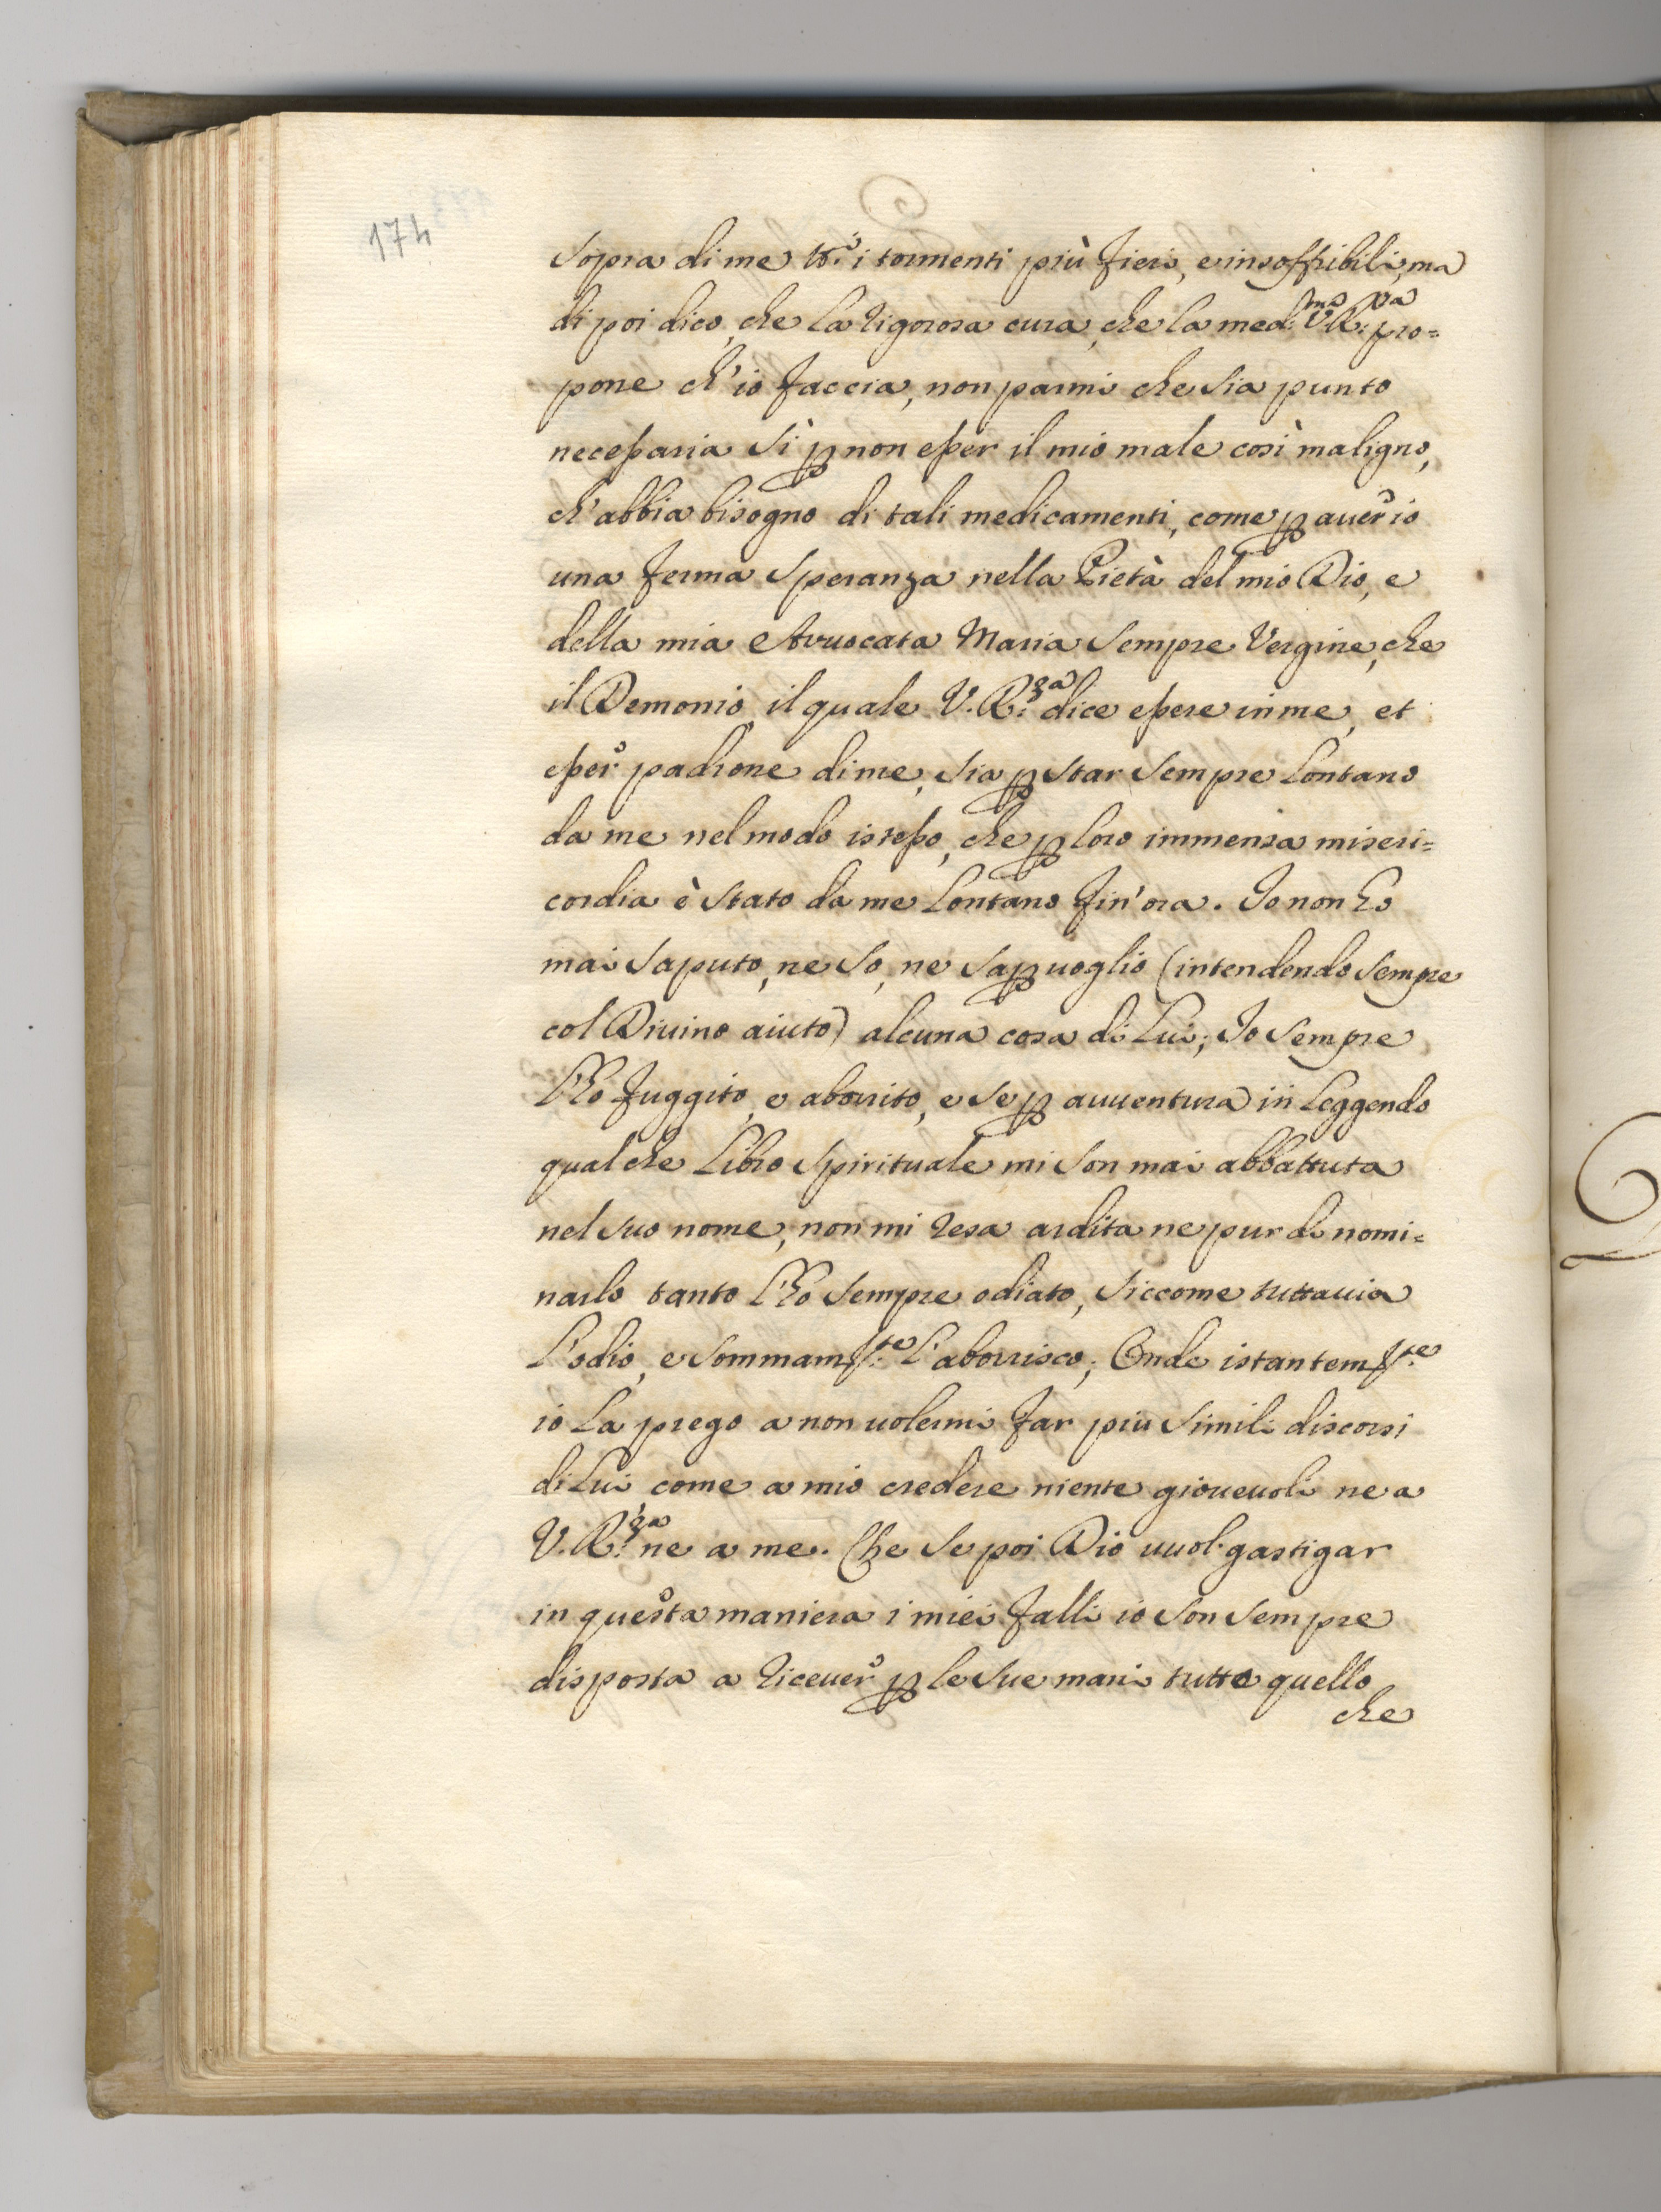 174
sopra di me tt.i i tormenti più fieri, e insoffribili, ma
di poi dico, che la rigorosa cura, che la med.ma V.R.za pro=
pone ch'io faccia, non parmi che sia punto
necessaria sì ꝑ non esser il mio male così maligno,
ch'abbia bisogno di tali medicamenti, come ꝑ auer io
una ferma speranza nella Pietà del mio Dio, e
della mia Avuocata Maria sempre Vergine, che
il Demonio, il quale V.R.za dice essere in me, et
esser padrone di me, sia ꝑ star sempre lontano
da me nel modo istesso, che ꝑ loro immensa miseri=
cordia è stato da me lontano fin'ora. Io non ho
mai saputo, ne so, ne saꝑ uoglio (intendendo sempre
col Diuino aiuto) alcuna cosa di Lui; Io sempre
l'ho fuggito, e aborrito, e se ꝑ auuentura in leggendo
qualche Libro spirituale mi son mai abbattuta
nel suo nome, non mi resa ardita ne pur di nomi=
narlo tanto l'ho sempre odiato, siccome tuttauia
l'odio, e sommam.te l'aborrisco; Onde istantem.te
io la prego a non uolermi far piu simili discorsi
di Lui come a mio credere niente gioueuoli ne a
V.R.za ne a me. Che se poi Dio uuol gastigar
in questa maniera i miei falli io son sempre
disposta a riceuer ꝑ le sue mani tutto quello
che